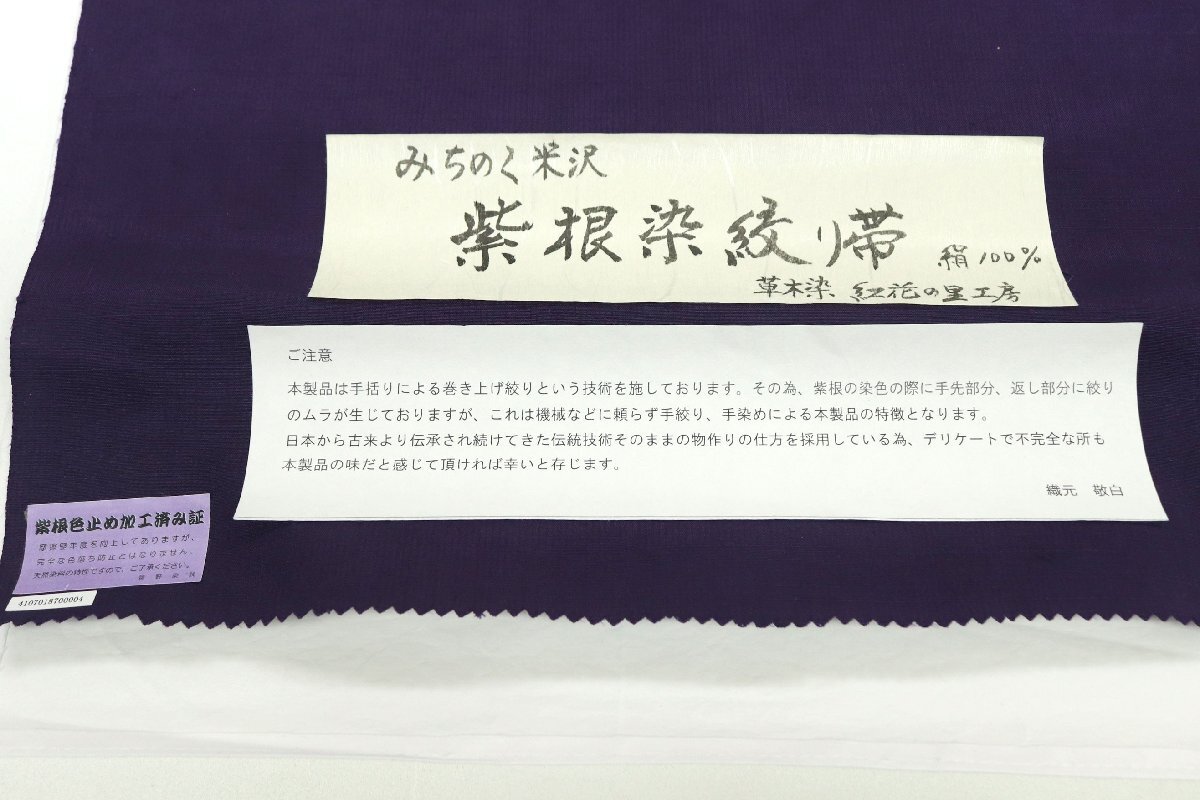 みちのく米沢
紫根染絞り帯
絹100%
草木染 紅花の里工房
ご注意
本製品は手括りによる巻き上げ絞りという技術を施しております。その為、紫根の染色の際に手先部分、返し部分に絞り
のムラが生じておりますが、これは機械などに頼らず手絞り、手染めによる本製品の特徴となります。
日本から古来より伝承され続けてきた伝統技術そのままの物作りの仕方を採用している為、デリケートで不完全な所も
本製品の味だと感じて頂ければ幸いと存じます。
織元 敬白
紫根色止め加工済み証
摩擦堅牢度を向上してありますが、
完全な色落ち防止とはなりません。
天然染料の特性ですので、ご了承ください。
4107018700004